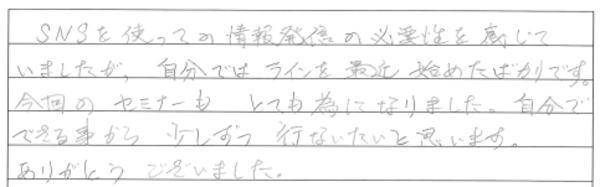 SNSを使っての情報発信の必要性を感じて
いましたが、自分ではラインを最近始めたばかりです。
今回のセミナーも とても為になりました。自分で
できる事から 少しずつ 行ないたいと思います。
ありがとう ございました。